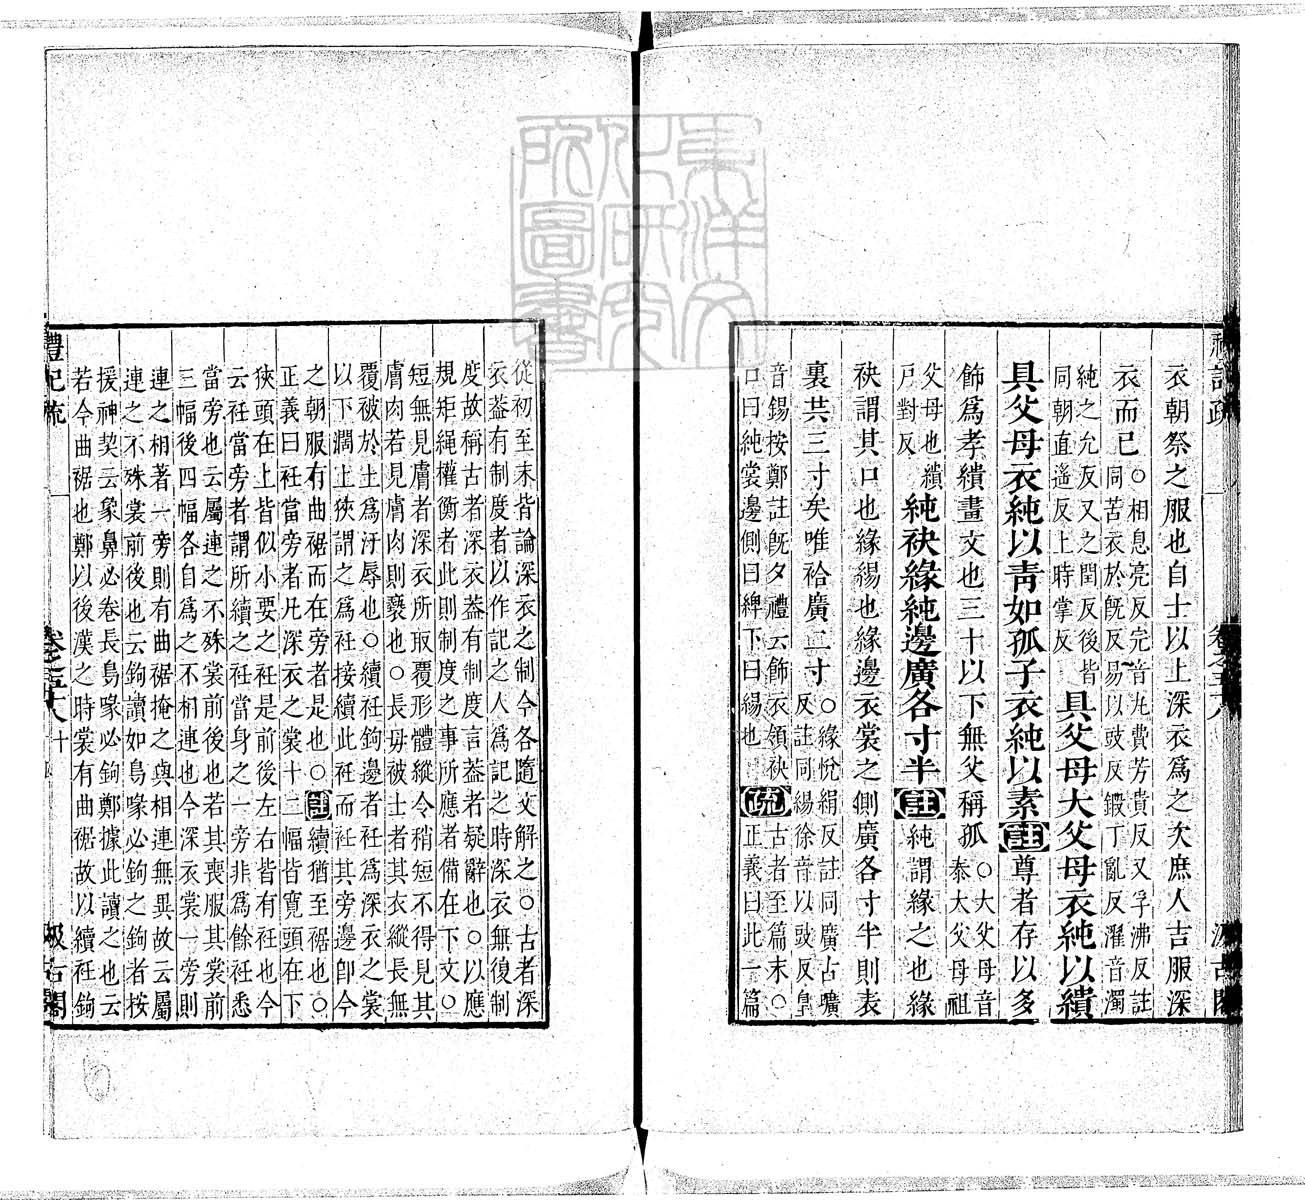 衣朝祭之服也自士以上深衣爲之次庶人吉服深
衣而已○相息亮反完音丸費芳貴反又孚沸反註
同苦衣於旣反易以豉反鍛丁亂反濯音濁
純之允反又之閏反後皆
同朝直遥反上時掌反
具父母大父母衣純以繢
具父母衣純以靑如孤子衣純以素註尊者存以多
飾爲孝繢畫文也三十以下無父稱孤○大父母音
泰大父母祖
父母也繢
戸對反
純袂緣純邊廣各寸半註純謂緣之也緣
袂謂其口也緣緆也緣邊衣裳之側廣各寸半則表
裏共三寸矣唯袷廣二寸○緣悅絹反註同廣古曠
反註同緆徐音以豉反皇
音錫按鄭註旣夕禮云飾衣領袂
口曰純裳邊側曰綼下曰緆也
疏古者至篇末○
正義曰此一篇
從初至末皆論深衣之制今各隨文解之○古者深
衣葢有制度者以作記之人爲記之時深衣無復制
度故稱古者深衣葢有制度言葢者疑辭也○以應
規矩繩權衡者此則制度之事所應者備在下文○
短無見膚者深衣所取覆形體縱令稍短不得見其
膚肉若見膚肉則褻也○長毋被土者其衣縱長無
覆被於土爲汙辱也○續衽鉤邊者衽爲深衣之裳
以下濶上狹謂之爲衽接續此衽而衽其旁邊卽今
之朝服有曲裾而在旁者是也○註續猶至裾也○
正義曰衽當旁者凡深衣之裳十二幅皆寬頭在下
狹頭在上皆似小要之衽是前後左右皆有衽也今
云衽當旁者謂所續之衽當身之一旁非爲餘衽悉
當旁也云屬連之不殊裳前後也若其喪服其裳前
三幅後四幅各自爲之不相連也今深衣裳一旁則
連之相著一旁則有曲裾掩之與相連無異故云屬
連之不殊裳前後也云鉤讀如鳥喙必鉤之鉤者按
援神契云象鼻必卷長鳥喙必鉤鄭據此讀之也云
若今曲裾也鄭以後漢之時裳有曲裾故以續衽鉤
禮記疏 卷之五十八 十 汲古閣